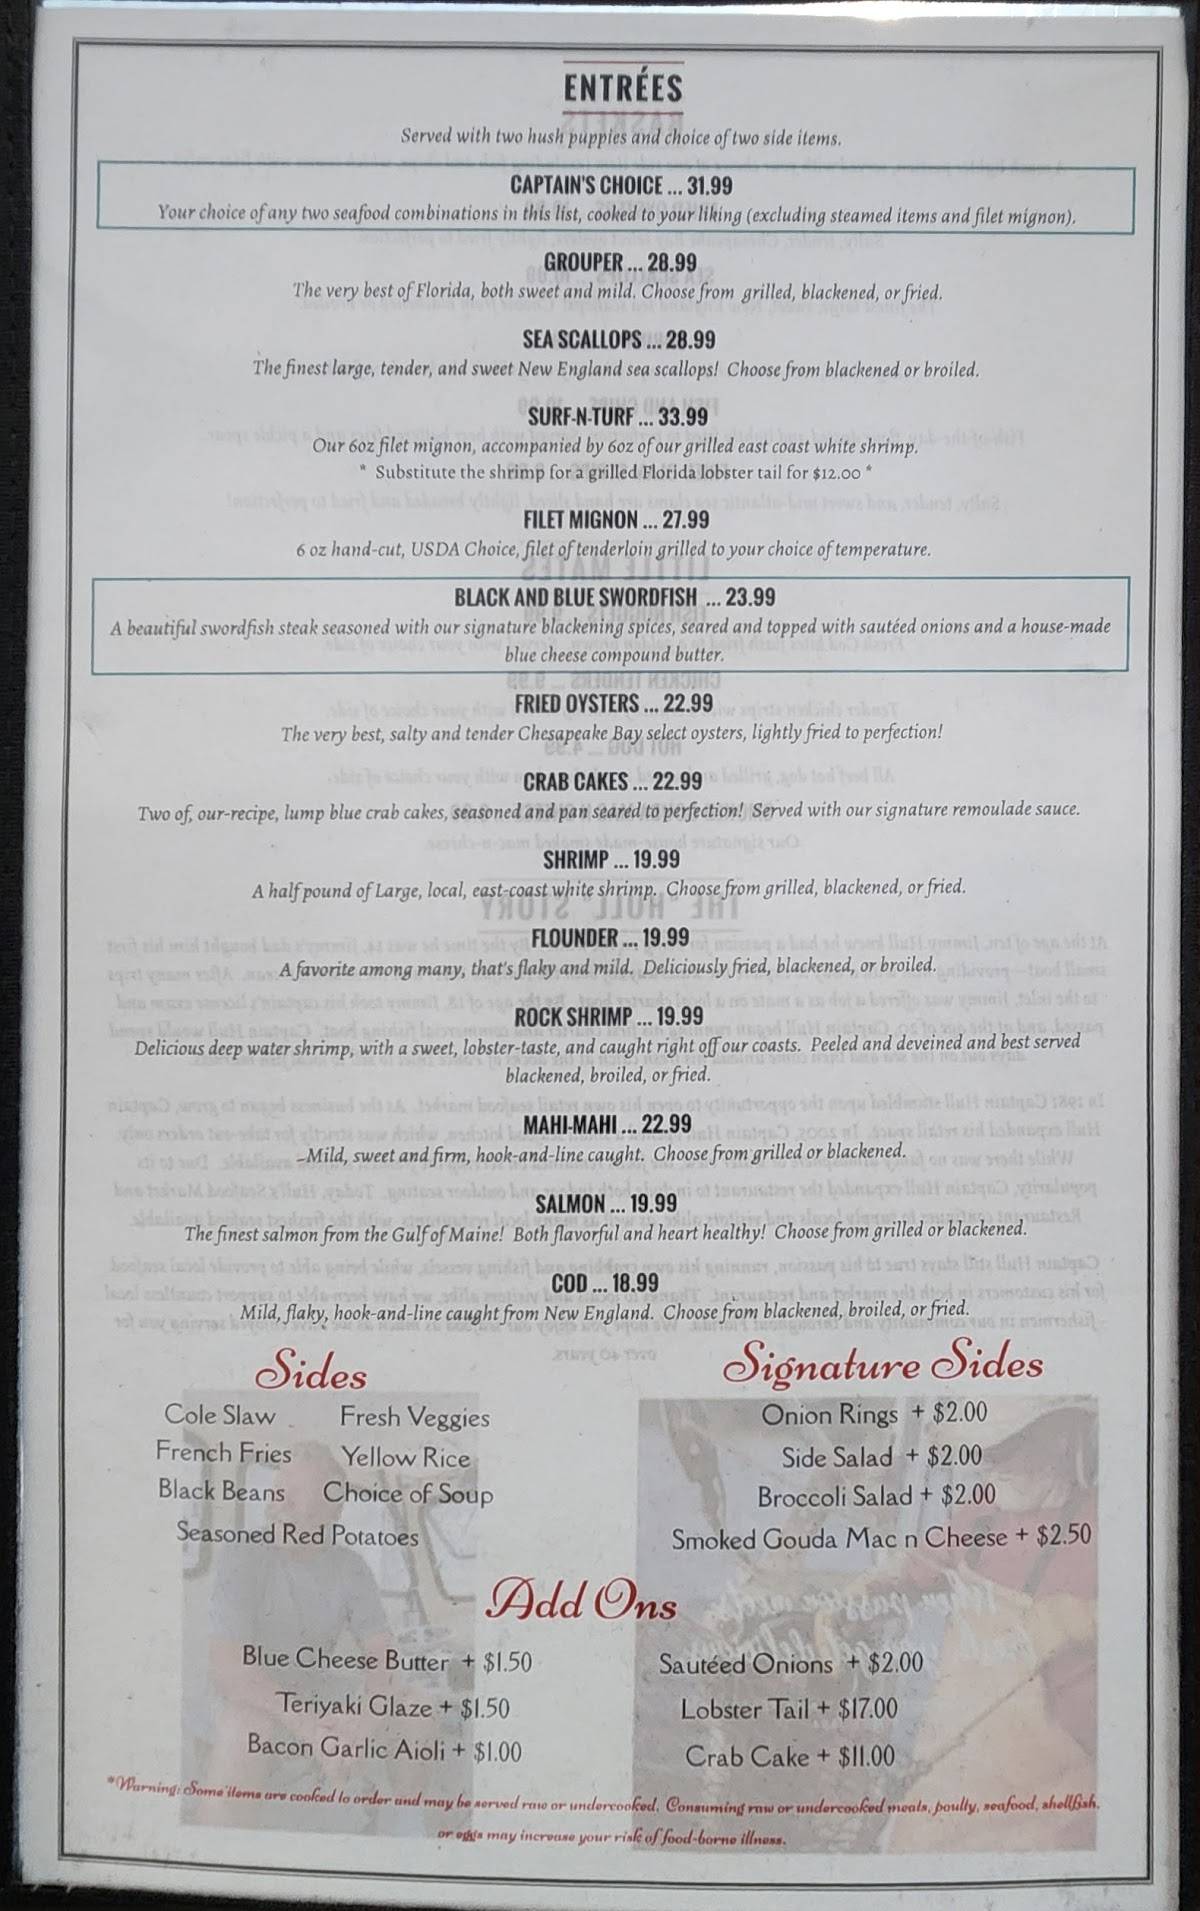 ENTRÉES
Served with two hush puppies and choice of two side items.
CAPTAIN'S CHOICE ... 31.99
Your choice of any two seafood combinations in this list, cooked to your liking (excluding steamed items and filet mignon).
GROUPER ... 28.99
The very best of Florida, both sweet and mild. Choose from grilled, blackened, or fried.
SEA SCALLOPS ... 28.99
The finest large, tender, and sweet New England sea scallops! Choose from blackened or broiled.
SURF-N-TURF ... 33.99
Our 6oz filet mignon, accompanied by 6oz of our grilled east coast white shrimp.
* Substitute the shrimp for a grilled Florida lobster tail for $12.00 *
FILET MIGNON ... 27.99
6 oz hand-cut, USDA Choice, filet of tenderloin grilled to your choice of temperature.
BLACK AND BLUE SWORDFISH ... 23.99
A beautiful swordfish steak seasoned with our signature blackening spices, seared and topped with sautéed onions and a house-made
blue cheese compound butter.
FRIED OYSTERS ... 22.99
The very best, salty and tender Chesapeake Bay select oysters, lightly fried to perfection!
CRAB CAKES ... 22.99
Two of, our-recipe, lump blue crab cakes, seasoned and pan seared to perfection! Served with our signature remoulade sauce.
SHRIMP ... 19.99
A half pound of Large, local, east-coast white shrimp. Choose from grilled, blackened, or fried.
FLOUNDER ... 19.99
A favorite among many, that's flaky and mild. Deliciously fried, blackened, or broiled.
ROCK SHRIMP ... 19.99
Delicious deep water shrimp, with a sweet, lobster-taste, and caught right off our coasts. Peeled and deveined and best served
blackened, broiled, or fried.
MAHI-MAHI ... 22.99
Mild, sweet and firm, hook-and-line caught. Choose from grilled or blackened.
SALMON ... 19.99
The finest salmon from the Gulf of Maine! Both flavorful and heart healthy! Choose from grilled or blackened.
COD ... 18.99
Mild, flaky, hook-and-line caught from New England. Choose from blackened, broiled, or fried.
Sides
Cole Slaw Fresh Veggies
French Fries Yellow Rice
Black Beans Choice of Soup
Seasoned Red Potatoes
Signature Sides
Onion Rings + $2.00
Side Salad + $2.00
Broccoli Salad + $2.00
Smoked Gouda Mac n Cheese + $2.50
Add Ons
Blue Cheese Butter + $1.50
Teriyaki Glaze + $1.50
Bacon Garlic Aioli + $1.00
Sautéed Onions + $2.00
Lobster Tail + $17.00
Crab Cake + $11.00
*Warning: Some items are cooked to order and may be served raw or undercooked. Consuming raw or undercooked meats, poultry, seafood, shellfish,
or eggs may increase your risk of food-borne illness.